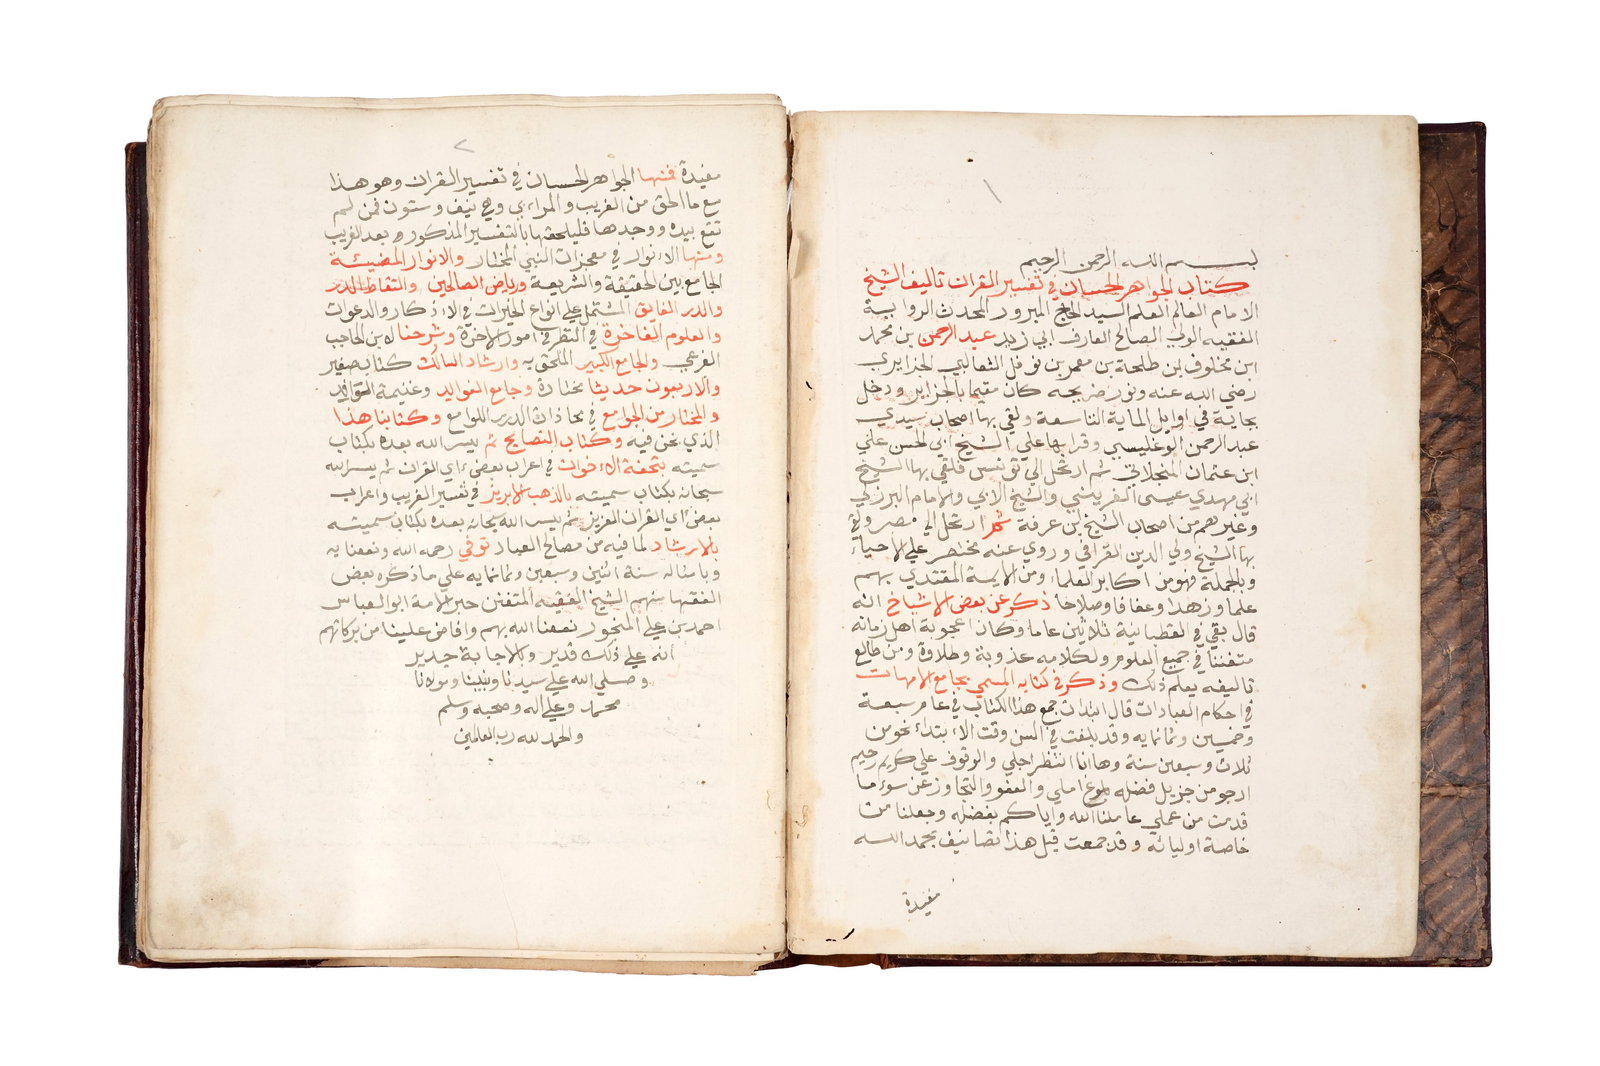 بسم الله الرحمن الرحيم
كتاب الجواهر الحسان في تفسير القران تاليف الشيخ
الامام العالم العلم السيد الحاج المبرور المحدث الرواية
الفقيه الولي الصالح العارف ابي زيد عبد الرحمن بن محمد
ابن مخلوف بن طلحة بن معمر بن نوفل الثعالبي الجزايري
رضي الله عنه ونور ضريحه كان مقيما بالجزاير ودخل
بجاية في اوايل الماية التاسعة ولقي بها اصحاب سيدي
عبد الرحمن الوغليسي وقرا بها علي الشيخ ابي الحسن علي
ابن عثمان المنجلاتي ثم ارتحل الي تونس فلقي بها الشيخ
ابي مهدي عيسي الغبريني والشيخ الابي والامام البرزلي
وغيرهم من اصحاب الشيخ ابن عرفة ثم ارتحل الي مصر ولقي
بها الشيخ ولي الدين القرافي وروي عنه مختصر علي الاحياء
وبالجملة فهو من اكابر العلماء ومن الايمة المقتدي بهم
علما وزهدا وعفافا وصلاحا ذكر عن بعض الاشياخ انه
قال بقي في القطبانية ثلاثين عاما وكان اعجوبة اهل زمانه
متفننا في جميع العلوم ولكلامه عذوبة وطلاوة ومن طالع
تاليفه يعلم ذلك وذكر في كتابه المسمي بجامع الامهات
في احكام العبادات قال ابتدات جمع هذا الكتاب في عام سبعة
وخمسين وثمانمايه وقد بلغت في السن وقت الابتداء نحو من
ثلاث وسبعين سنة وها انا انتظر اجلي والوقوف علي كريم رحيم
ارجو من جزيل فضله بلوغ املي والعفو والتجاوز عن سوء ما
قدمت من عملي عاملنا الله واياكم بفضله وجعلنا من
خاصة اوليائه وقد جمعت قبل هذا تصانيف بحمد الله
مفيدة
مفيدة فمنها الجواهر الحسان في تفسير القران وهو هذا
مع ما الحق من الغريب والمراءي وهي نيف وستون فمن لم
تقع بيده ووجدها فليلحقها بالتفسير المذكور بعد الغريب
ومنها الانوار في معجزات النبي المختار والانوار المضيئة
الجامع بين الحقيقة والشريعة ورياض الصالحين والتقاط الدرر
والدر الفايق المشتمل علي انواع الخيرات في الاذكار والدعوات
والعلوم الفاخرة في النظر في امور الاخرة وشرحنا لابن الحاجب
الفرعي والجامع الكبير الملحق به وارشاد السالك كتاب صغير
والاربعون حديثا مختارة وجامع الفوايد وغنيمة الوافد
والمختار من الجوامع في محاذات الدرر اللوامع وكتابنا هذا
الذي نحن فيه وكتاب النصايح ثم يسر الله بعده بكتاب
سميته بتحفة الاخوان في اعراب بعض اي القران ثم يسر الله
سبحانه بكتاب سميته بالذهب الابريز في تفسير الغريب واعراب
بعض اي القران العزيز ثم يسر الله سبحانه بعده بكتاب سميته
بالارشاد لما فيه من مصالح العباد توفي رحمه الله ونفعنا به
وبامثاله سنة اثنين وسبعين وثمانمايه علي ما ذكره بعض
الفقها منهم الشيخ الفقيه المتفنن حبر الامة ابو العباس
احمد بن علي المنجور نفعنا الله بهم وافاض علينا من بركاتهم
انه علي ذلك قدير وبالاجابة جدير
وصلي الله علي سيدنا ونبينا ومولانا
محمد وعلي اله وصحبه وسلم
والحمد لله رب العالمين